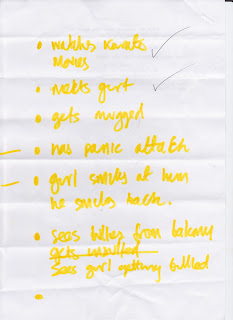 • watches Karate
Movies
• meets girl
• gets mugged
• has panic attack
• girl smiles at him
he smiles back.
• sees bullies from balcony
gets
sees girl getting bullied
•